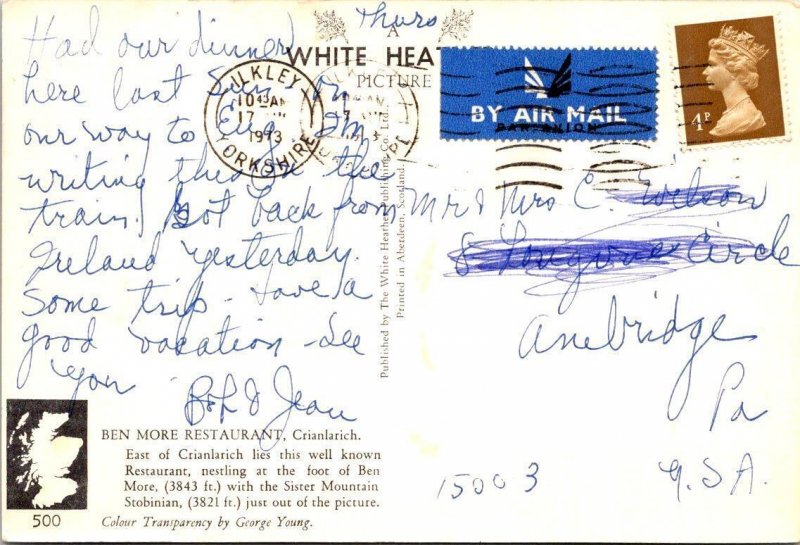 Thurs
Had our dinner
here last Sun, on
our way to Eng. I'm
writing this on the
train. Got back from
Ireland yesterday.
Some trip - have a
good vacation - See
you
Bob & Jean
A
WHITE HEATHER
PICTURE
ILKLEY
10 45 AM
17
1973
YORKSHIRE
BY AIR MAIL
PAR AVION
4P
Mr & Mrs C. Wilson
8 Circle
Ambridge
Pa
15003 U.S.A.
Published by The White Heather Publishing Co. Ltd.
Printed in Aberdeen, Scotland.
BEN MORE RESTAURANT, Crianlarich.
East of Crianlarich lies this well known
Restaurant, nestling at the foot of Ben
More, (3843 ft.) with the Sister Mountain
Stobinian, (3821 ft.) just out of the picture.
500
Colour Transparency by George Young.